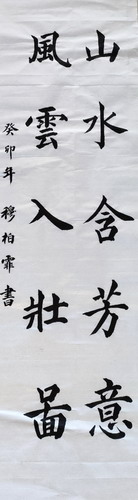 山水含芳意
風雲入壯圖
癸卯年 穆柏霏書